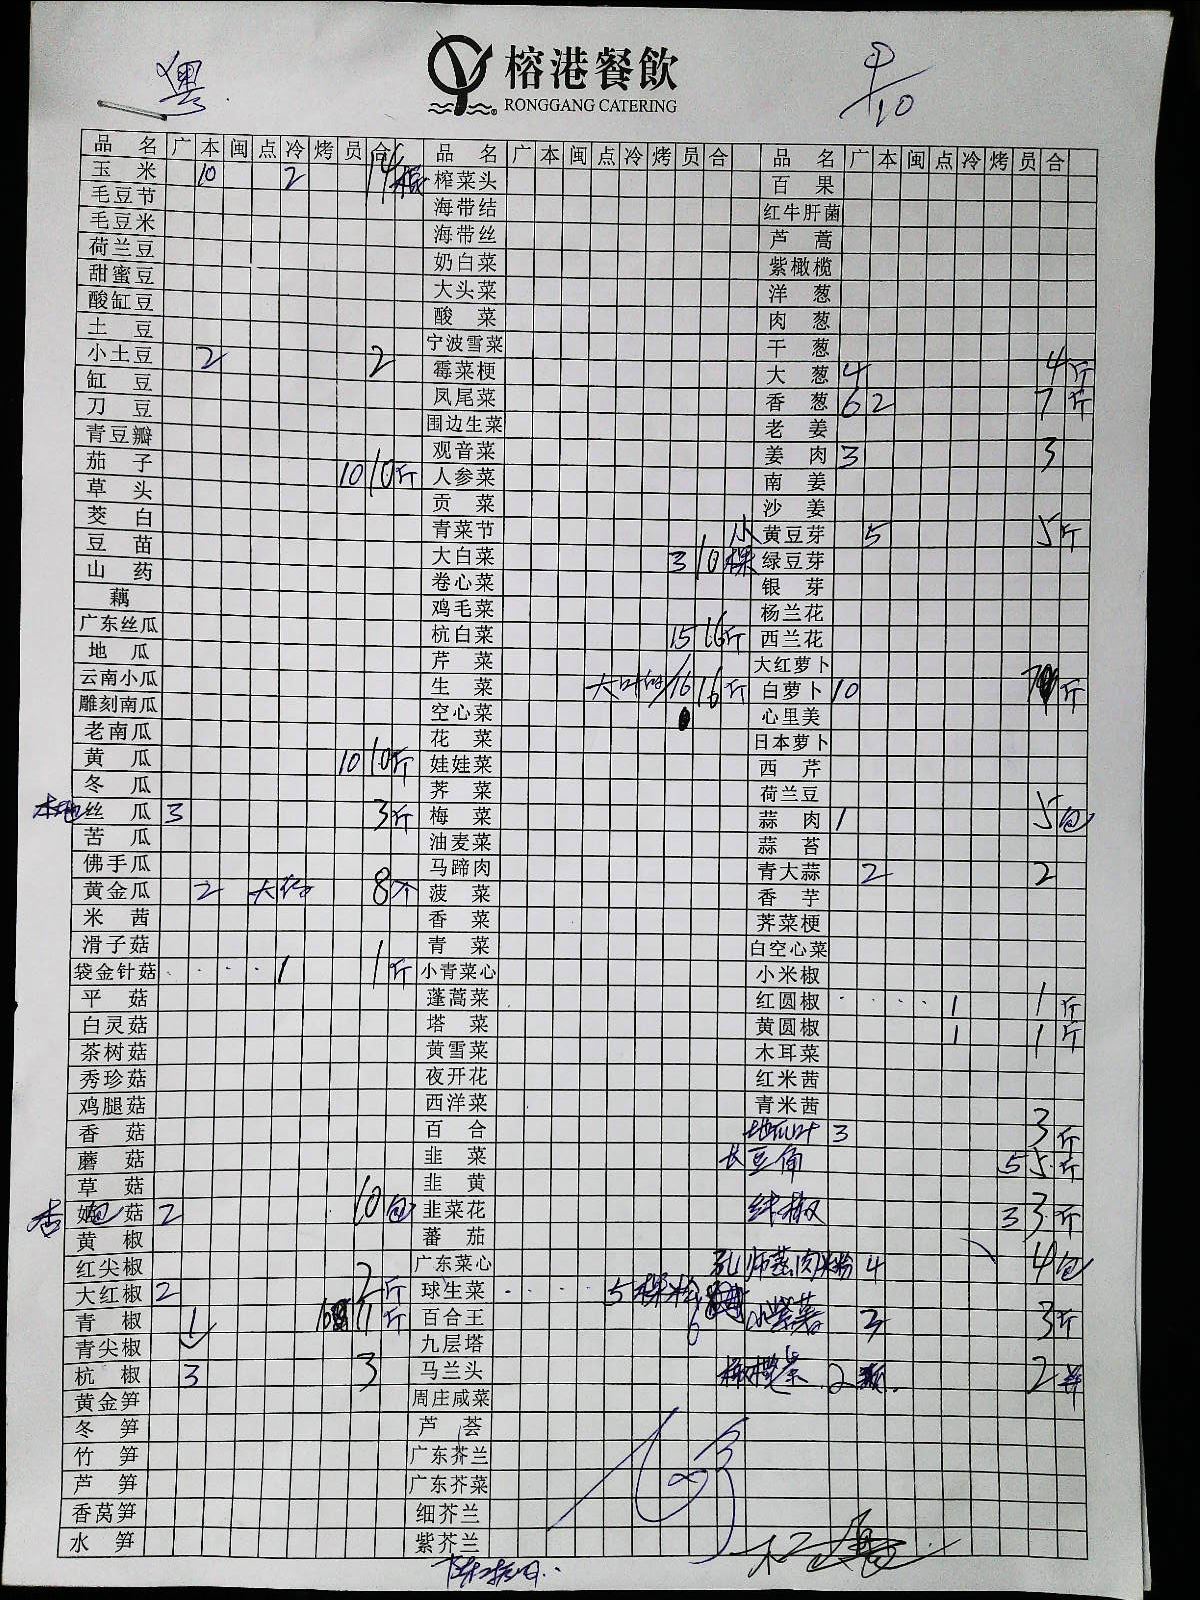 粤
榕港餐飲
RONGGANG CATERING
9/10
品名 广 本 闽 点 冷 烤 员 合 品名 广 本 闽 点 冷 烤 员 合 品名 广 本 闽 点 冷 烤 员 合
玉米 10 2 14 榨菜头 百果
毛豆节 海带结 红牛肝菌
毛豆米 海带丝 芦蒿
荷兰豆 奶白菜 紫橄榄
甜蜜豆 大头菜 洋葱
酸缸豆 酸菜 肉葱
土豆 宁波雪菜 干葱
小土豆 2 2 霉菜梗 大葱 4 4斤
缸豆 凤尾菜 香葱 6 2 7斤
刀豆 围边生菜 老姜
青豆瓣 观音菜 姜肉 3 3
茄子 10 10斤 人参菜 南姜
草头 贡菜 沙姜
茭白 青菜节 小 黄豆芽 5 5斤
豆苗 大白菜 3 10棵 绿豆芽
山药 卷心菜 银芽
藕 鸡毛菜 杨兰花
广东丝瓜 杭白菜 15 16斤 西兰花
地瓜 芹菜 大红萝卜
云南小瓜 生菜 大叶的 16 16斤 白萝卜 10 斤
雕刻南瓜 空心菜 心里美
老南瓜 花菜 日本萝卜
黄瓜 10 10斤 娃娃菜 西芹
冬瓜 荠菜 荷兰豆
本地丝瓜 3 3斤 梅菜 蒜肉 1 5包
苦瓜 油麦菜 蒜苔
佛手瓜 马蹄肉 青大蒜 2 2
黄金瓜 2 8个 菠菜 香芋
米茜 香菜 荠菜梗
滑子菇 青菜 白空心菜
袋金针菇 1 1斤 小青菜心 小米椒
平菇 蓬蒿菜 红圆椒 1 1斤
白灵菇 塔菜 黄圆椒 1 1斤
茶树菇 黄雪菜 木耳菜
秀珍菇 夜开花 红米茜
鸡腿菇 西洋菜 青米茜
香菇 百合 地瓜叶 3 3斤
蘑菇 韭菜 长豆角 5 5斤
草菇 韭黄
杏鲍菇 2 10包 韭菜花 线椒 3 3斤
黄椒 蕃茄
红尖椒 广东菜心 孔师蒸肉米粉 4 4包
大红椒 2 2斤 球生菜 5棵
青椒 1 11斤 百合王 6 小紫薯 3 3斤
青尖椒 九层塔
杭椒 3 3 马兰头 橄榄菜 2瓶 2
黄金笋 周庄咸菜
冬笋 芦荟
竹笋 广东芥兰
芦笋 广东芥菜
香莴笋 细芥兰
水笋 紫芥兰